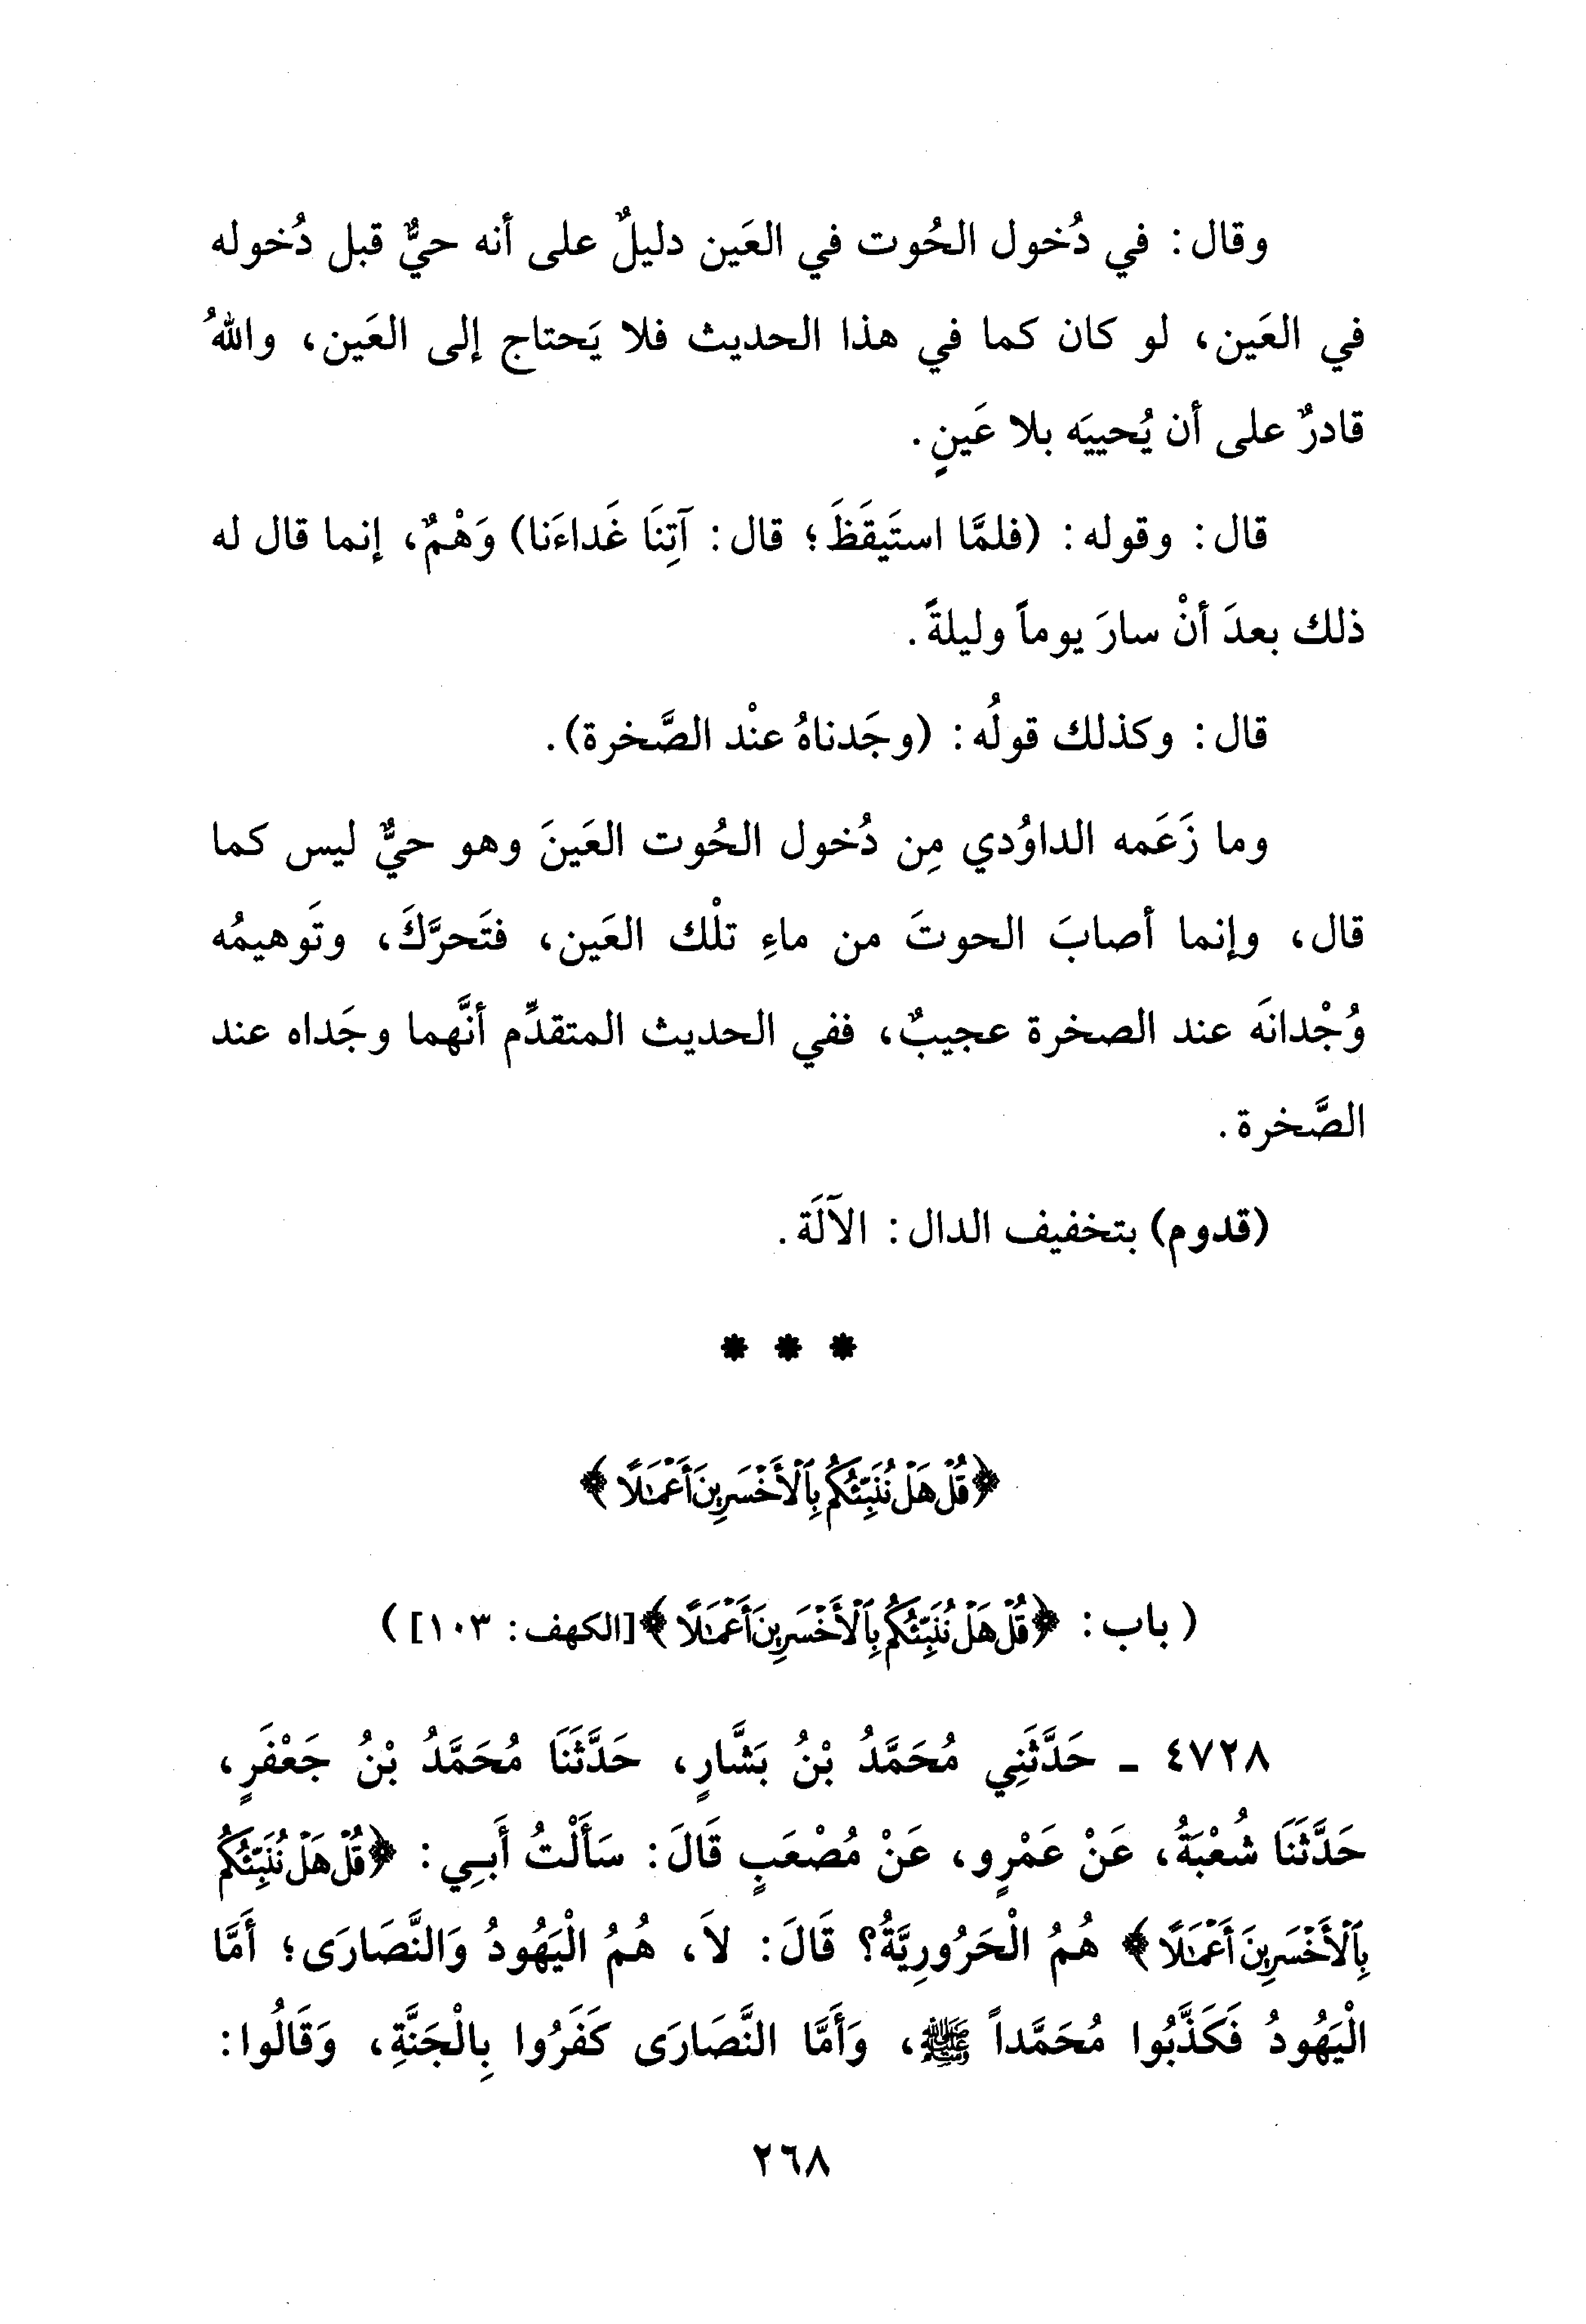 وقال: في دُخول الحُوت في العَين دليلٌ على أنه حيٌّ قبل دُخوله
في العَين، لو كان كما في هذا الحديث فلا يَحتاج إلى العَين، واللهُ
قادرٌ على أن يُحييَه بلا عَينٍ.
قال: وقوله: (فلمَّا استَيقَظَ؛ قال: آتِنَا غَداءَنا) وَهْمٌ، إنما قال له
ذلك بعدَ أنْ سارَ يوماً وليلةً.
قال: وكذلك قولُه: (وجَدناهُ عنْد الصَّخرة).
وما زَعَمه الداوُدي مِن دُخول الحُوت العَينَ وهو حيٌّ ليس كما
قال، وإنما أصابَ الحوتَ من ماءِ تلْك العَين، فتَحرَّكَ، وتَوهيمُه
وُجْدانَه عند الصخرة عجيبٌ، ففي الحديث المتقدِّم أنَّهما وجَداه عند
الصَّخرة.
(قدوم) بتخفيف الدال: الآلَة.
* * *
﴿قُلْ هَلْ نُنَبِّئُكُم بِٱلْأَخْسَرِينَ أَعْمَٰلًا﴾
(باب: ﴿قُلْ هَلْ نُنَبِّئُكُم بِٱلْأَخْسَرِينَ أَعْمَٰلًا﴾[الكهف: ١٠٣])
٤٧٢٨ - حَدَّثَنِي مُحَمَّدُ بْنُ بَشَّارٍ، حَدَّثَنَا مُحَمَّدُ بْنُ جَعْفَرٍ،
حَدَّثَنَا شُعْبَةُ، عَنْ عَمْرٍو، عَنْ مُصْعَبٍ قَالَ: سَأَلْتُ أَبِي: ﴿قُلْ هَلْ نُنَبِّئُكُم
بِٱلْأَخْسَرِينَ أَعْمَٰلًا﴾ هُمُ الْحَرُورِيَّةُ؟ قَالَ: لاَ، هُمُ الْيَهُودُ وَالنَّصَارَى؛ أَمَّا
الْيَهُودُ فَكَذَّبُوا مُحَمَّداً ﷺ، وَأَمَّا النَّصَارَى كَفَرُوا بِالْجَنَّةِ، وَقَالُوا:
٢٦٨